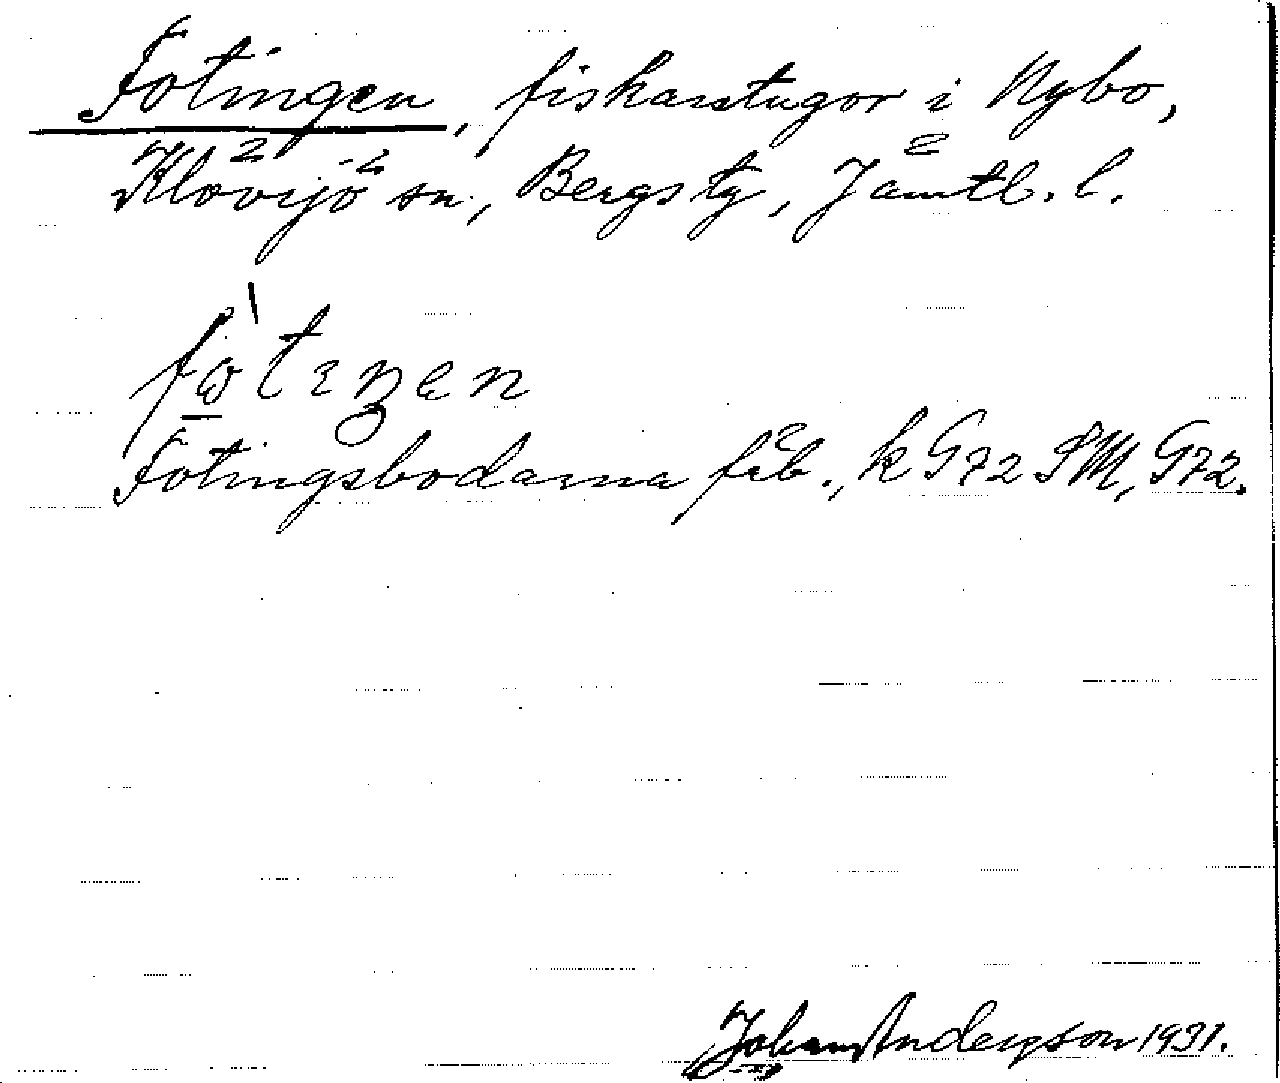 Fotingen, fiskarstugor i Nybo,
Klövsjö sn., Bergs tg, Jämtl. l.
Fotingsbodarna fäb., k G72 SM, G72.
Johan Anderson 1931.